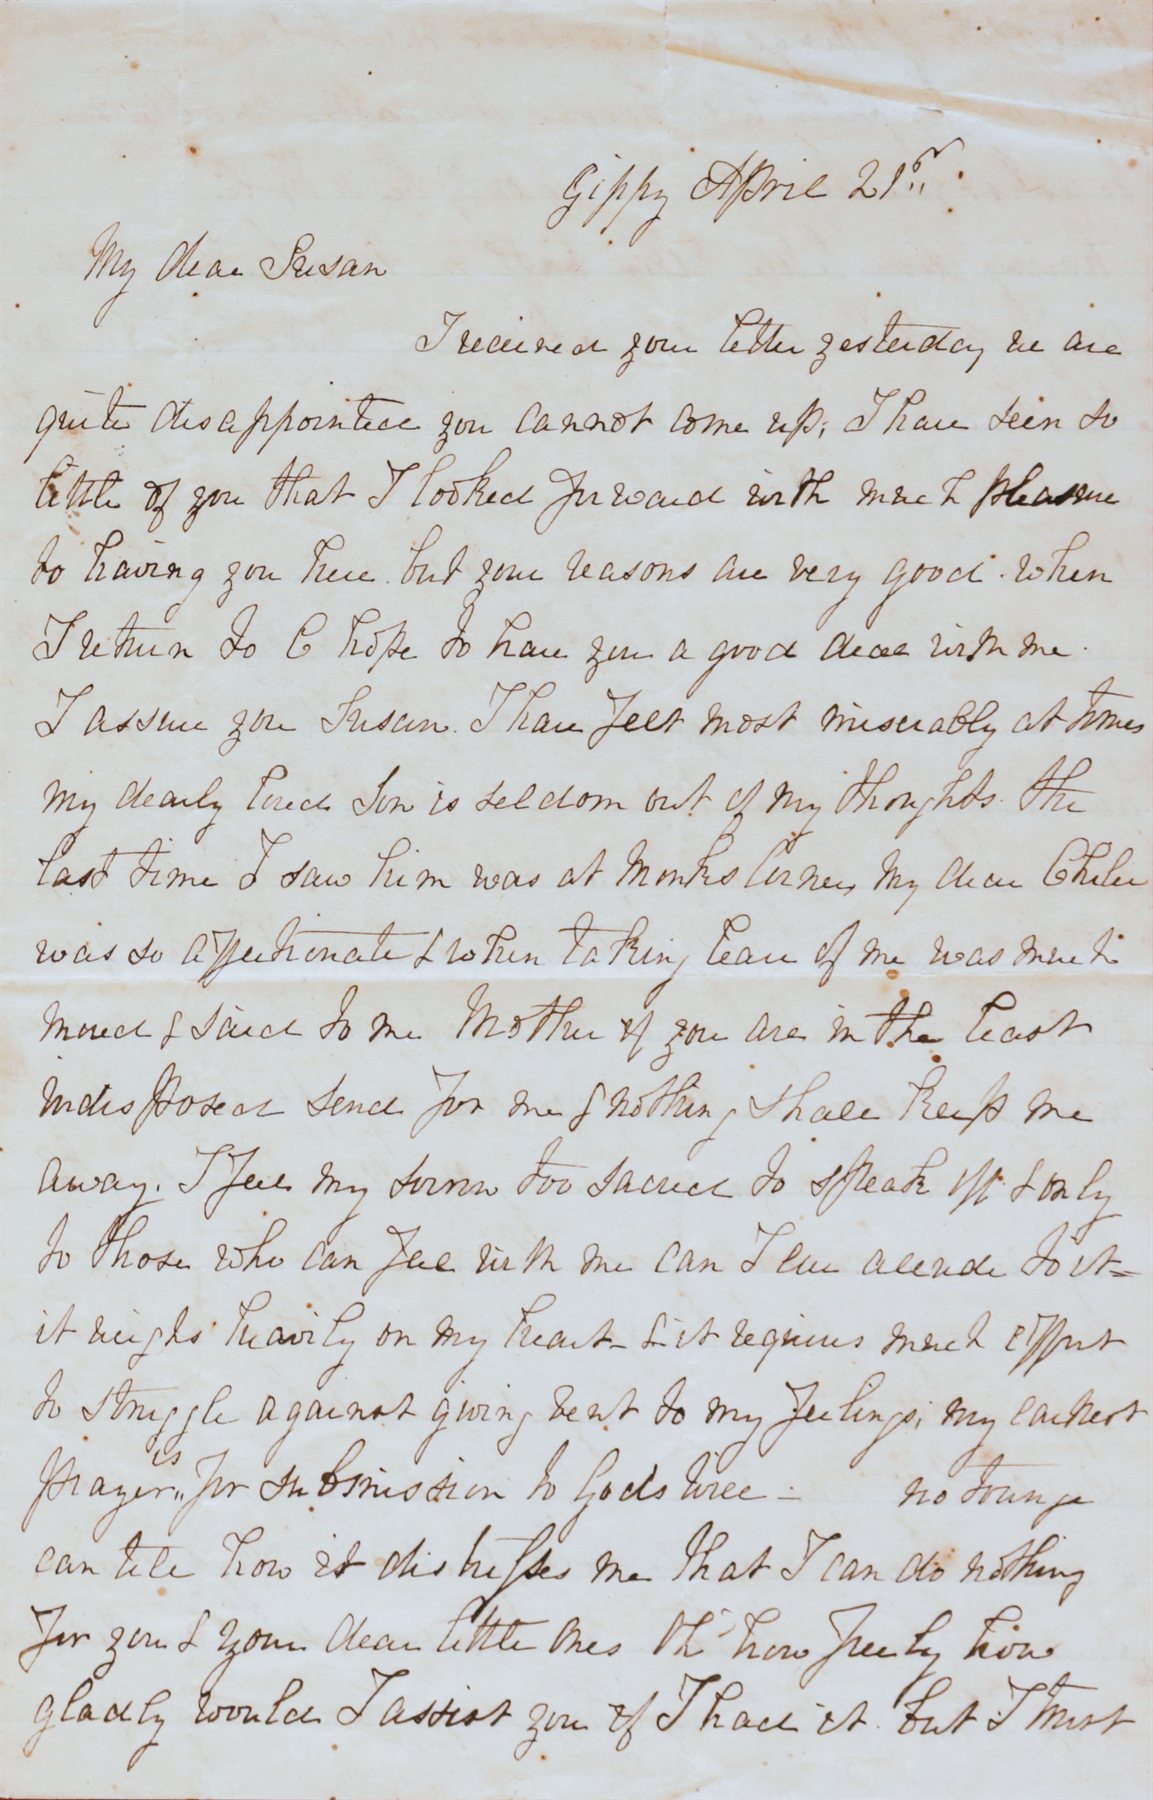 Gippy April 21st
My dear Susan
I received your letter yesterday we are
quite disappointed you cannot come up; I have seen so
little of you that I looked forward with much pleasure
to having you here. but your reasons are very good. when
I return to C hope to have you a good deal with me.
I assure you Susan. I have felt most miserably at times
my dearly loved Son is seldom out of my thoughts. the
last time I saw him was at Monks Corner, my dear
was so affectionate & when taking leave of me was much
moved & said to me Mother if you are in the least
indisposed send for me & nothing shall keep me
away. I feel my sorrow too sacred to speak of & only
to those who can feel with me can I ever allude to it =
it weighs heavily on my heart - & it requires much effort
to struggle against giving vent to my feelings; my earnest
prayer is for submission to Gods will - no tounge
can tell how it distresses me that I can do nothing
for you & your dear little ones Oh how freely how
gladly would I assist you if I had it. but I trust